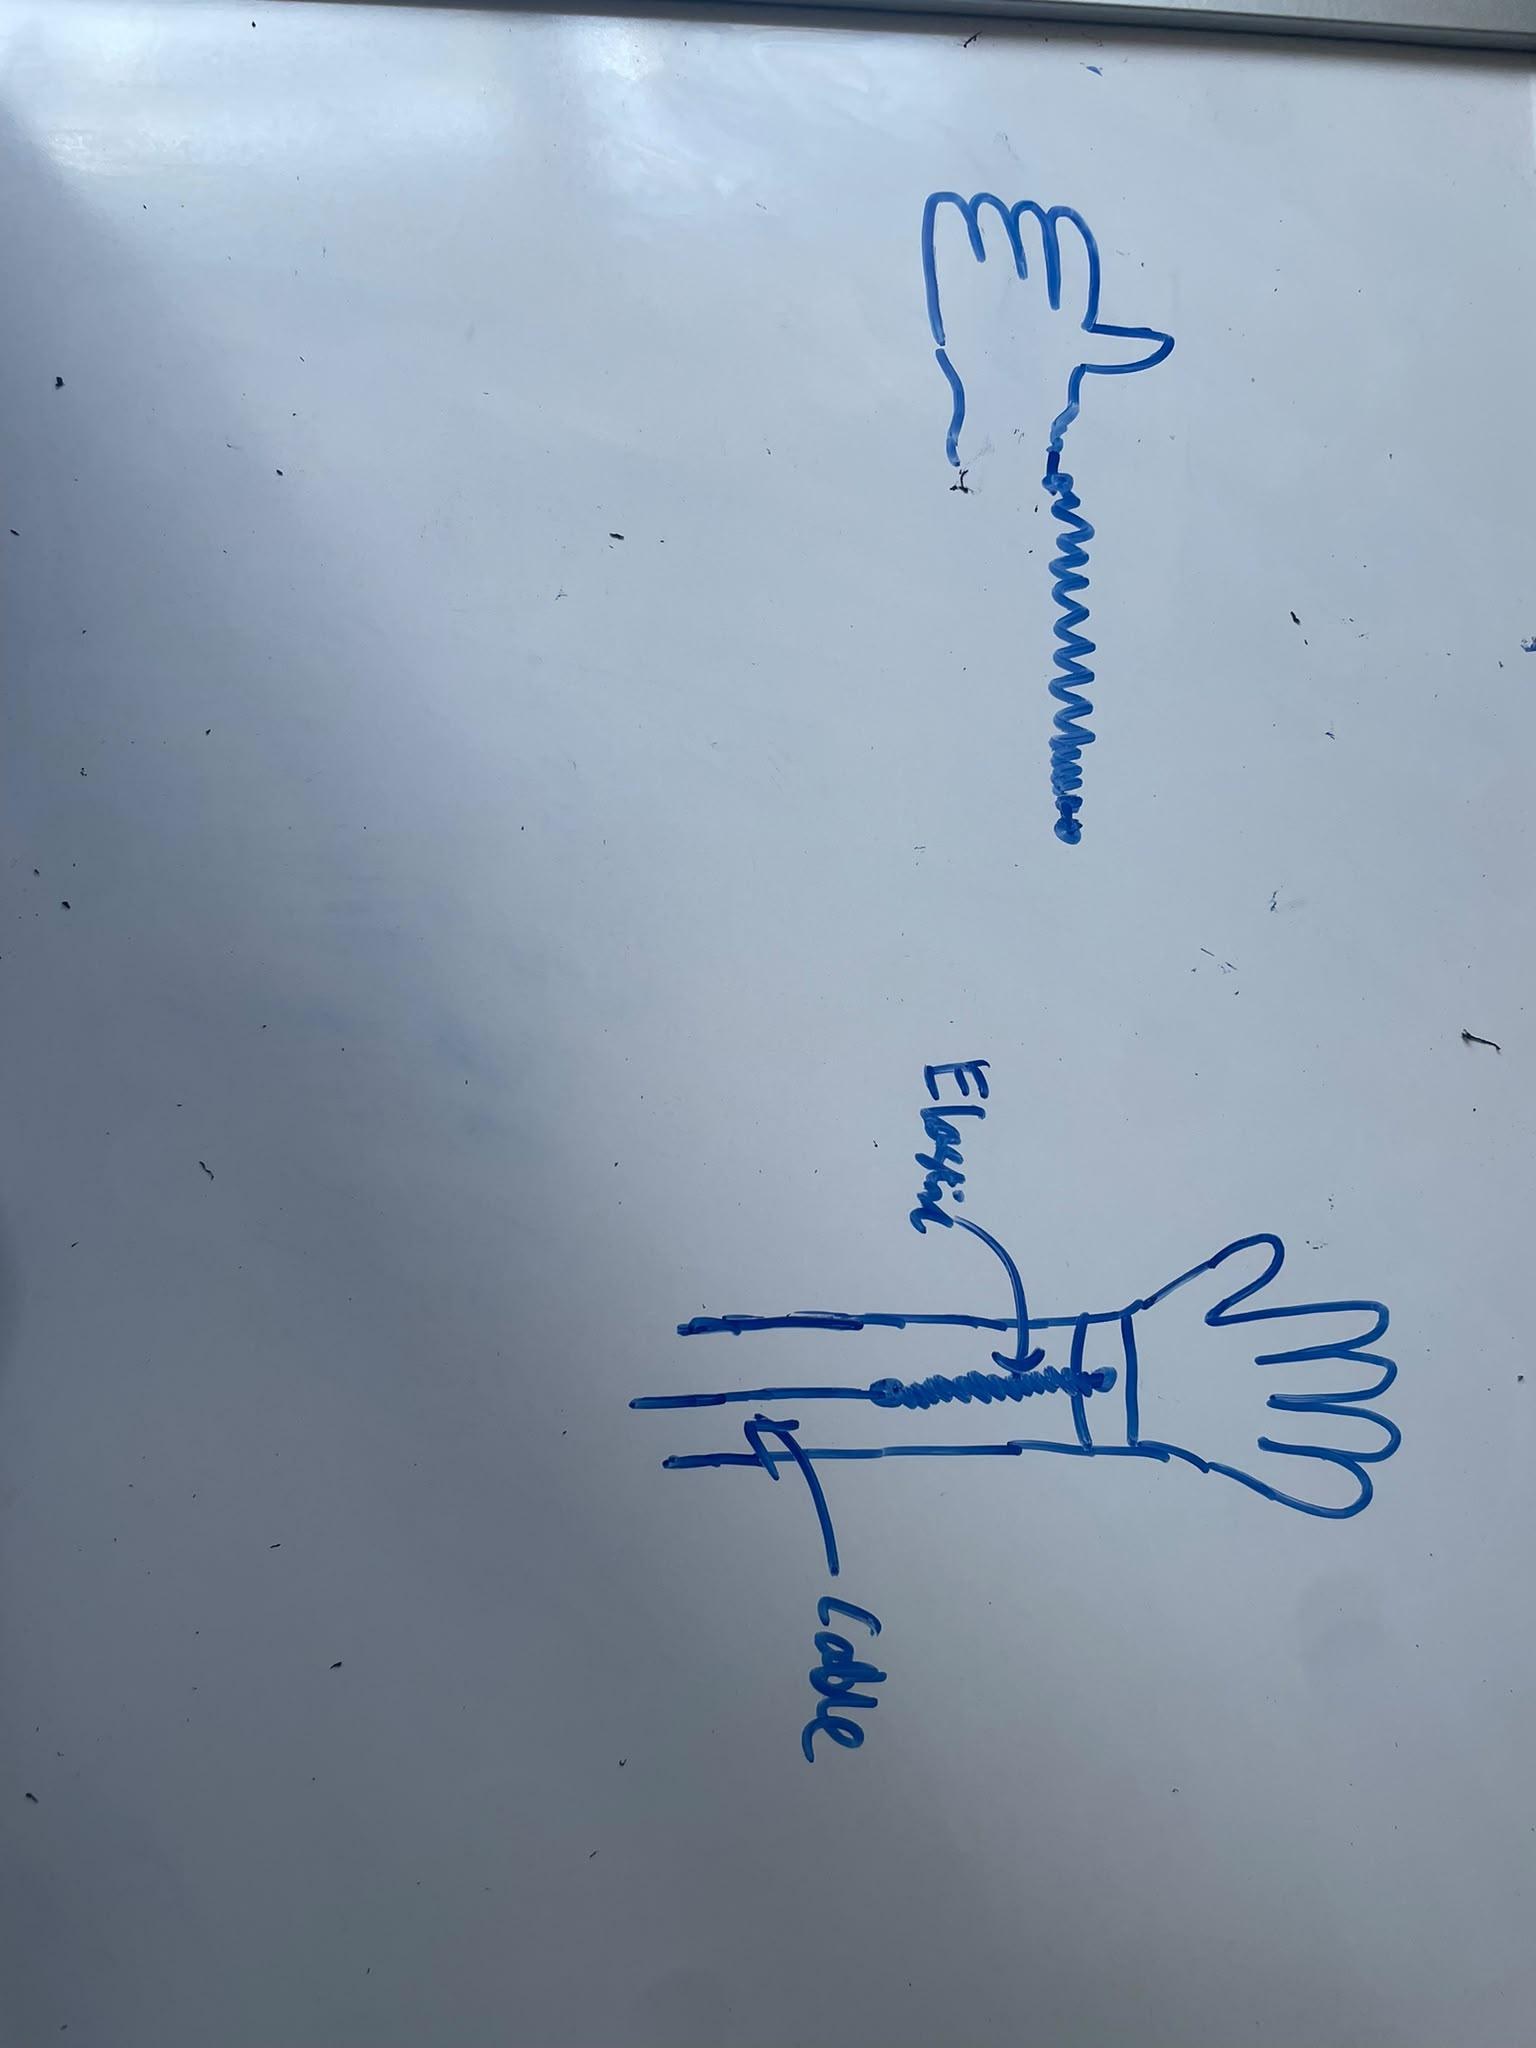 Elastic
Cable